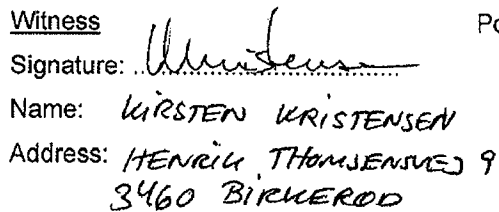 Witness
Po
Signature:
Name: KIRSTEN KRISTENSEN
Address: HENRIK THOMSENSVEJ 9
3460 BIRKEROD